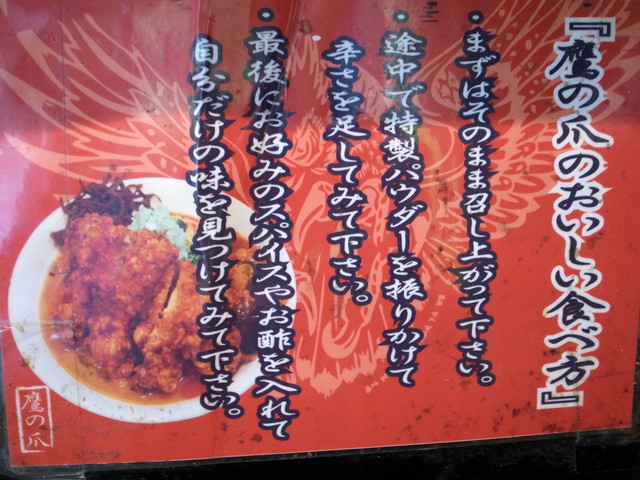 『鷹の爪のおいしい食べ方』
・まずはそのまま召し上がって下さい。
・途中で特製パウダーを振りかけて
辛さを足してみて下さい。
・最後にお好みのスパイスやお酢を入れて
自分だけの味を見つけてみて下さい。
鷹の爪